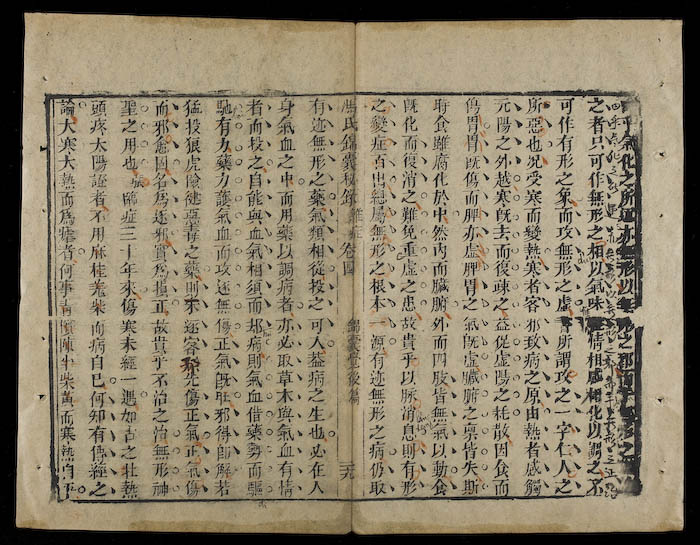 氣化之所運亦無形以無形之邪而
之者只可作無形之相以氣味性情相感相化以調之不
可作有形之象而攻無形之虛所謂攻之一字仁人之
所惡也况受寒而變熱寒者客邪致病之原由熱者感觸
元陽之外越寒旣去而復疎之益促虛陽之耗散因食而
傷胃胃旣傷而脾亦虛脾胃之氣旣虛臟腑之禀皆失斯
時食雖腐化於中然内而臟腑外而四肢皆無氣以動食
旣化而復消之難免重虛之患故貴乎以脉消息則有形
之變症百出總屬無形之根本一源有迹無形之病仍取
馮氏錦囊秘録 雜症 卷四 錦囊堂後篇 二九
有迹無形之藥氣類相從投之可入益病之生也必在人
身氣血之中而用藥以調病者亦必取草木與氣血有情
者而投之自能與血氣相須而却病則氣血借藥勢而驅
馳有力藥力護氣血而攻逐無傷正氣旣旺邪得卽解若
猛投狼虎險健惡毒之藥則不逐客邪先傷正氣正氣傷
而邪愈固名爲逐邪實爲損正故貴乎不治之治無形神
聖之用也 臨症三十年來傷寒未經一遇如古之壯熱
頭疼太陽證者不用麻桂羗柴而病自已何知有傳經之
論大寒大熱而爲瘧者何事靑陳半柴黄而寒熱自平